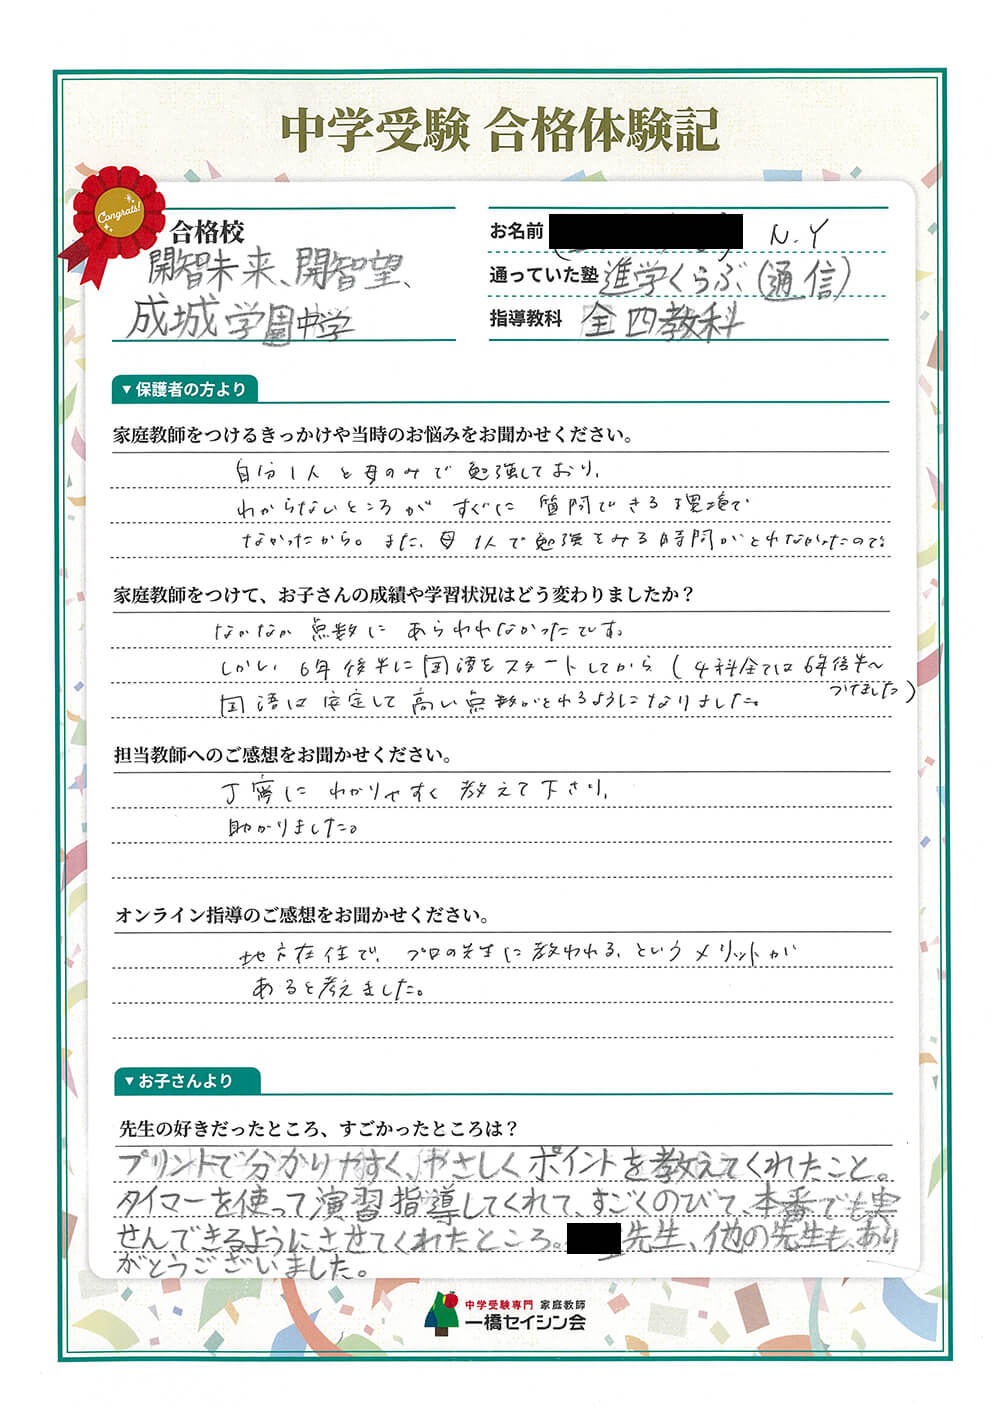 中学受験 合格体験記
Congrats!
合格校
開智未来、開智望、
成城学園中学
お名前 N.Y
通っていた塾 進学くらぶ(通信)
指導教科 全四教科
▼保護者の方より
家庭教師をつけるきっかけや当時のお悩みをお聞かせください。
自分1人と母のみで勉強しており、
わからないところがすぐに質問できる環境で
なかったから。また、母1人で勉強をみる時間がとれなかったので。
家庭教師をつけて、お子さんの成績や学習状況はどう変わりましたか？
なかなか点数にあらわれなかったです。
しかし6年後半に国語をスタートしてから(4科全ては6年後半～
つけました)
国語は安定して高い点数がとれるようになりました。
担当教師へのご感想をお聞かせください。
丁寧にわかりやすく教えて下さり、
助かりました。
オンライン指導のご感想をお聞かせください。
地方在住で、プロの先生に教われる、というメリットが
あると考えました。
▼お子さんより
先生の好きだったところ、すごかったところは？
プリントで分かりやすく、やさしくポイントを教えてくれたこと。
タイマーを使って演習指導してくれて、すごくのびて、本番でも実
せんできるようにさせてくれたところ。先生、他の先生も、あり
がとうございました。
中学受験専門 家庭教師
一橋セイシン会